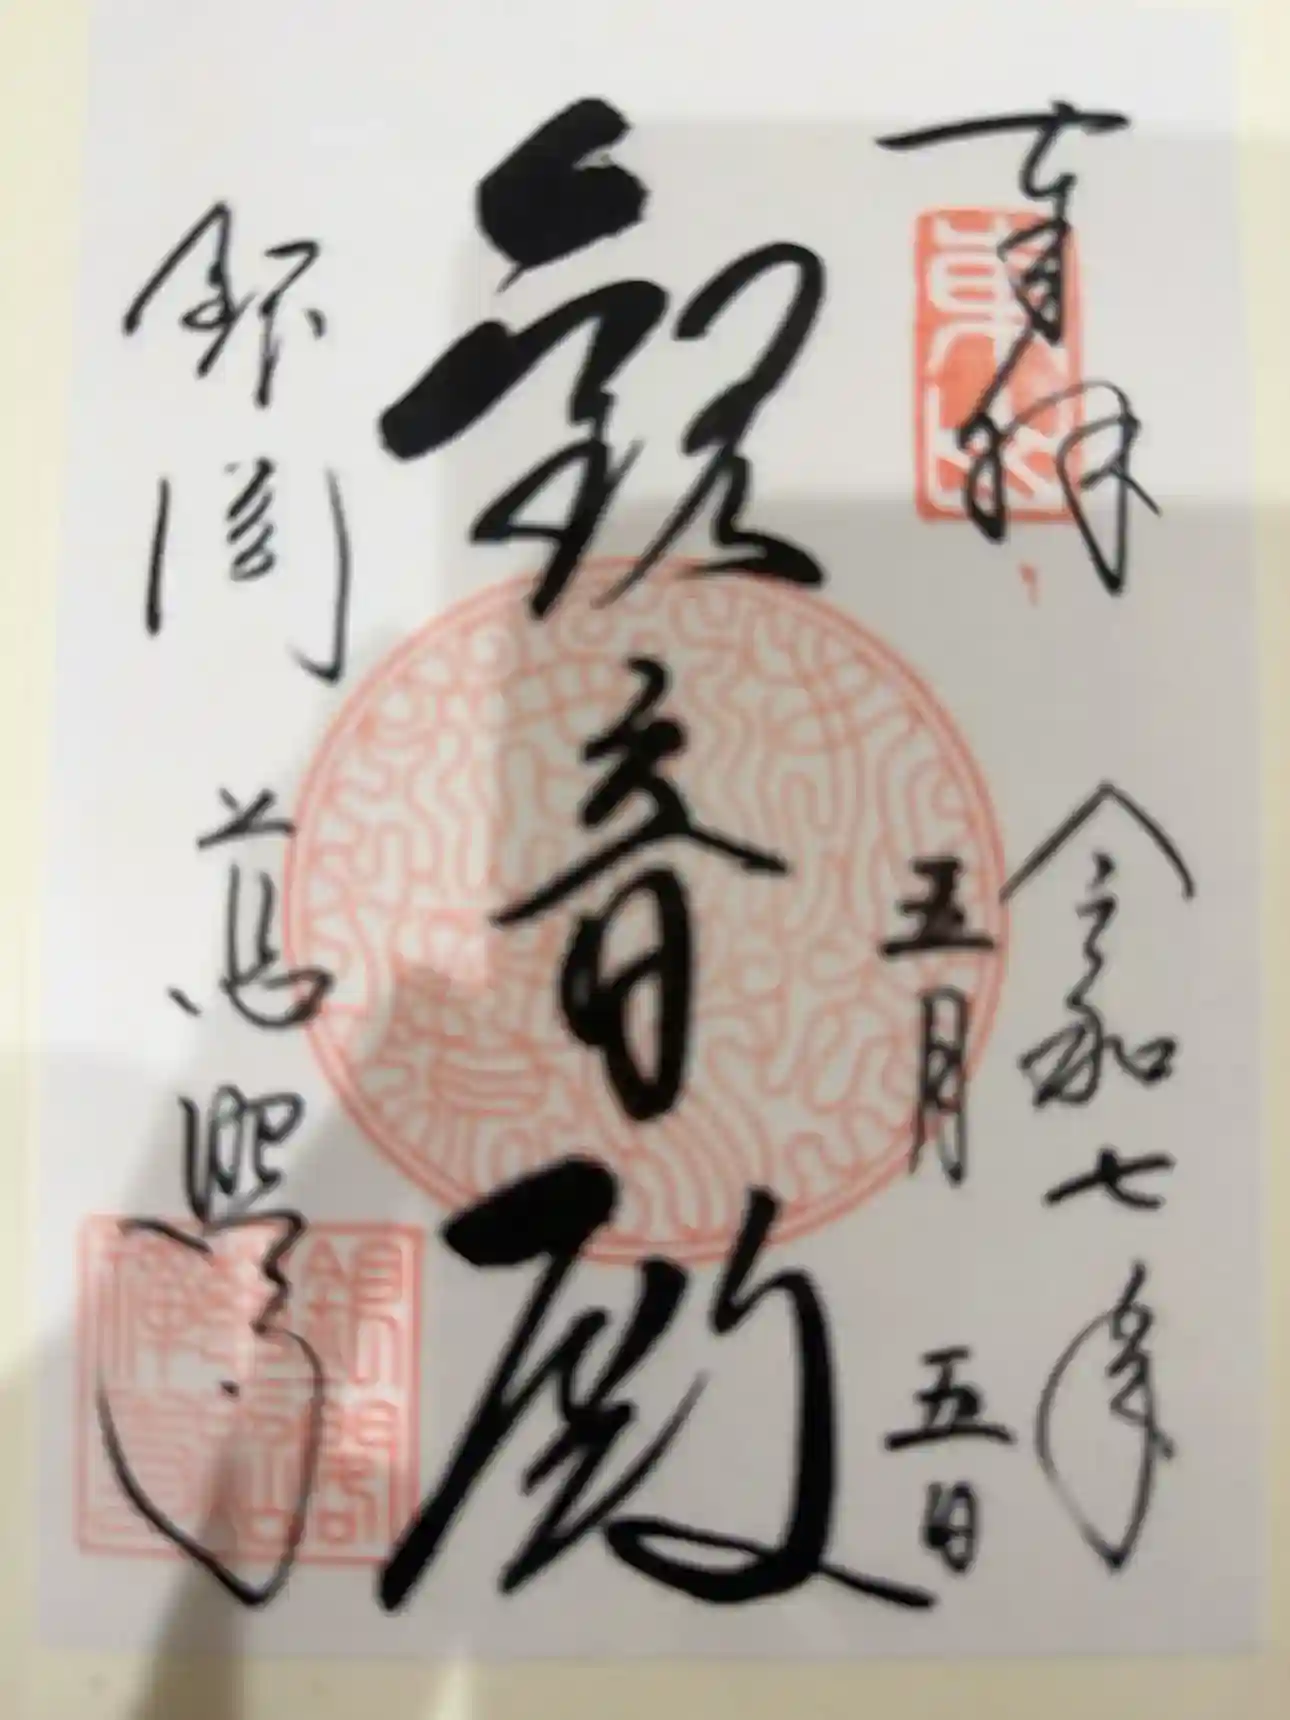 奉拝
東山
令和七年
五月五日
観音殿
銀閣慈照寺